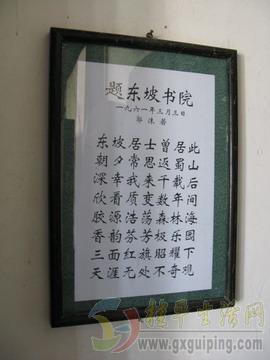 题东坡书院
一九六一年三月三日
郭沫若
东坡居士曾居此
朝夕常思返蜀山
深幸我来千载后
欣看质变数年间
胶源浩荡森林海
香韵芬芳极乐园
三面红旗昭耀下
天涯无处不奇观
桂平生活网
www.gxguiping.com